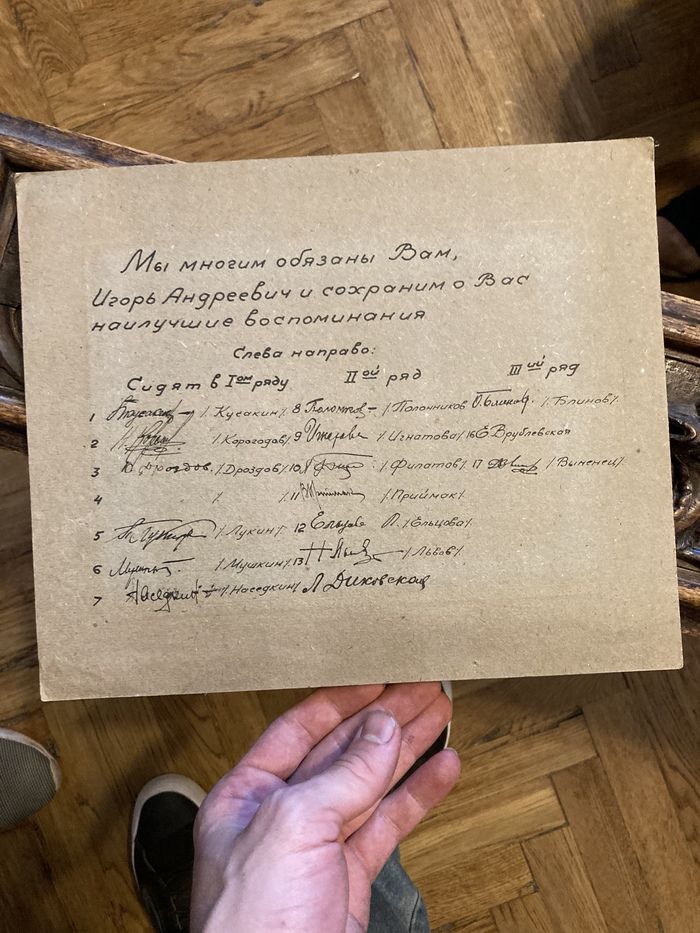 Мы многим обязаны Вам,
Игорь Андреевич и сохраним о Вас
наилучшие воспоминания
Слева направо:
Сидят в Iом ряду IIой ряд IIIий ряд
1 /Кусакин/ 8 /Полонников О. Блинов /Блинов/
2 /Корогодов/ 9 Игнатова /Игнатова/ 16 Е Врублевская
3 В. Дроздов /Дроздов/ 10 /Филатов/ 17 /Выненец/
4 / / 11 /Приймак/
5 /Лукин/ 12 Ельцова Л. /Ельцова/
6 /Мушкин/ 13 Н Львов /Львов/
7 Наседкин /Наседкин/ Л Диковская